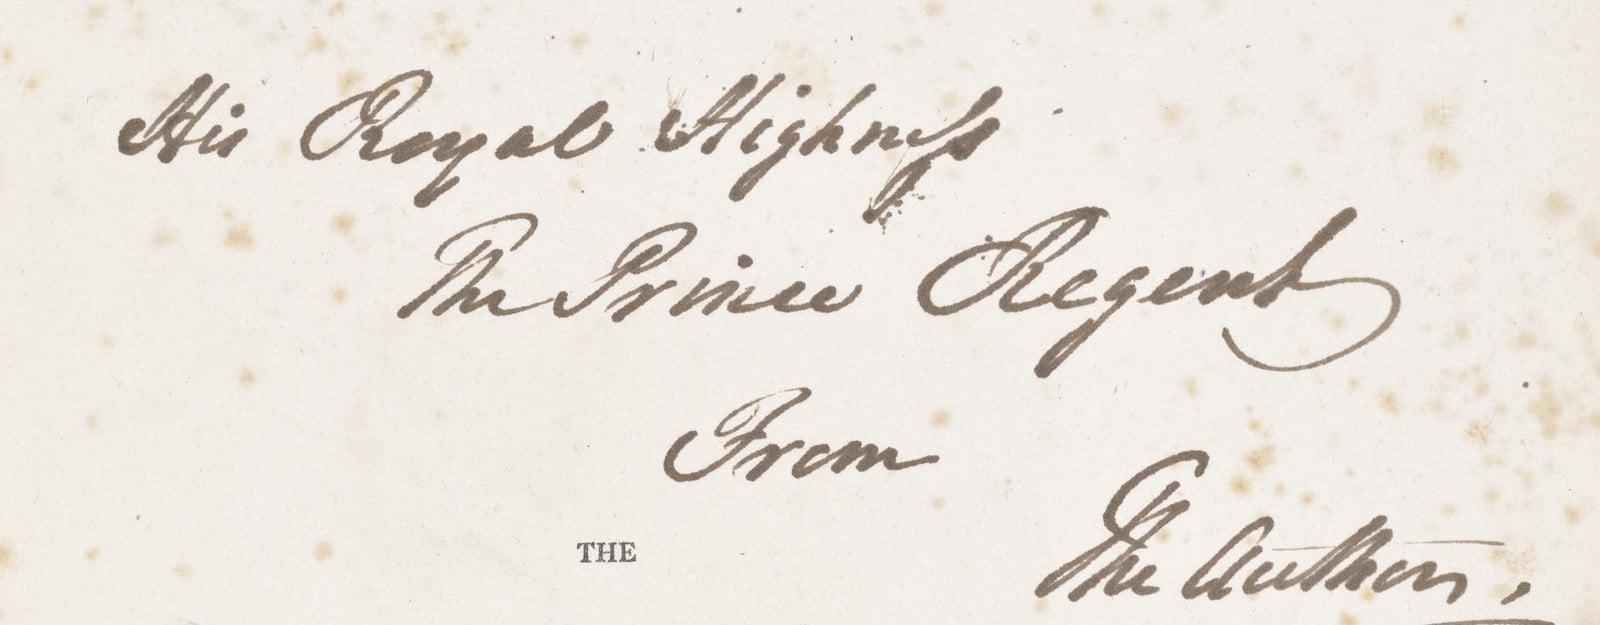 His Royal Highneſs
The Prince Regent
From
The Author.
THE